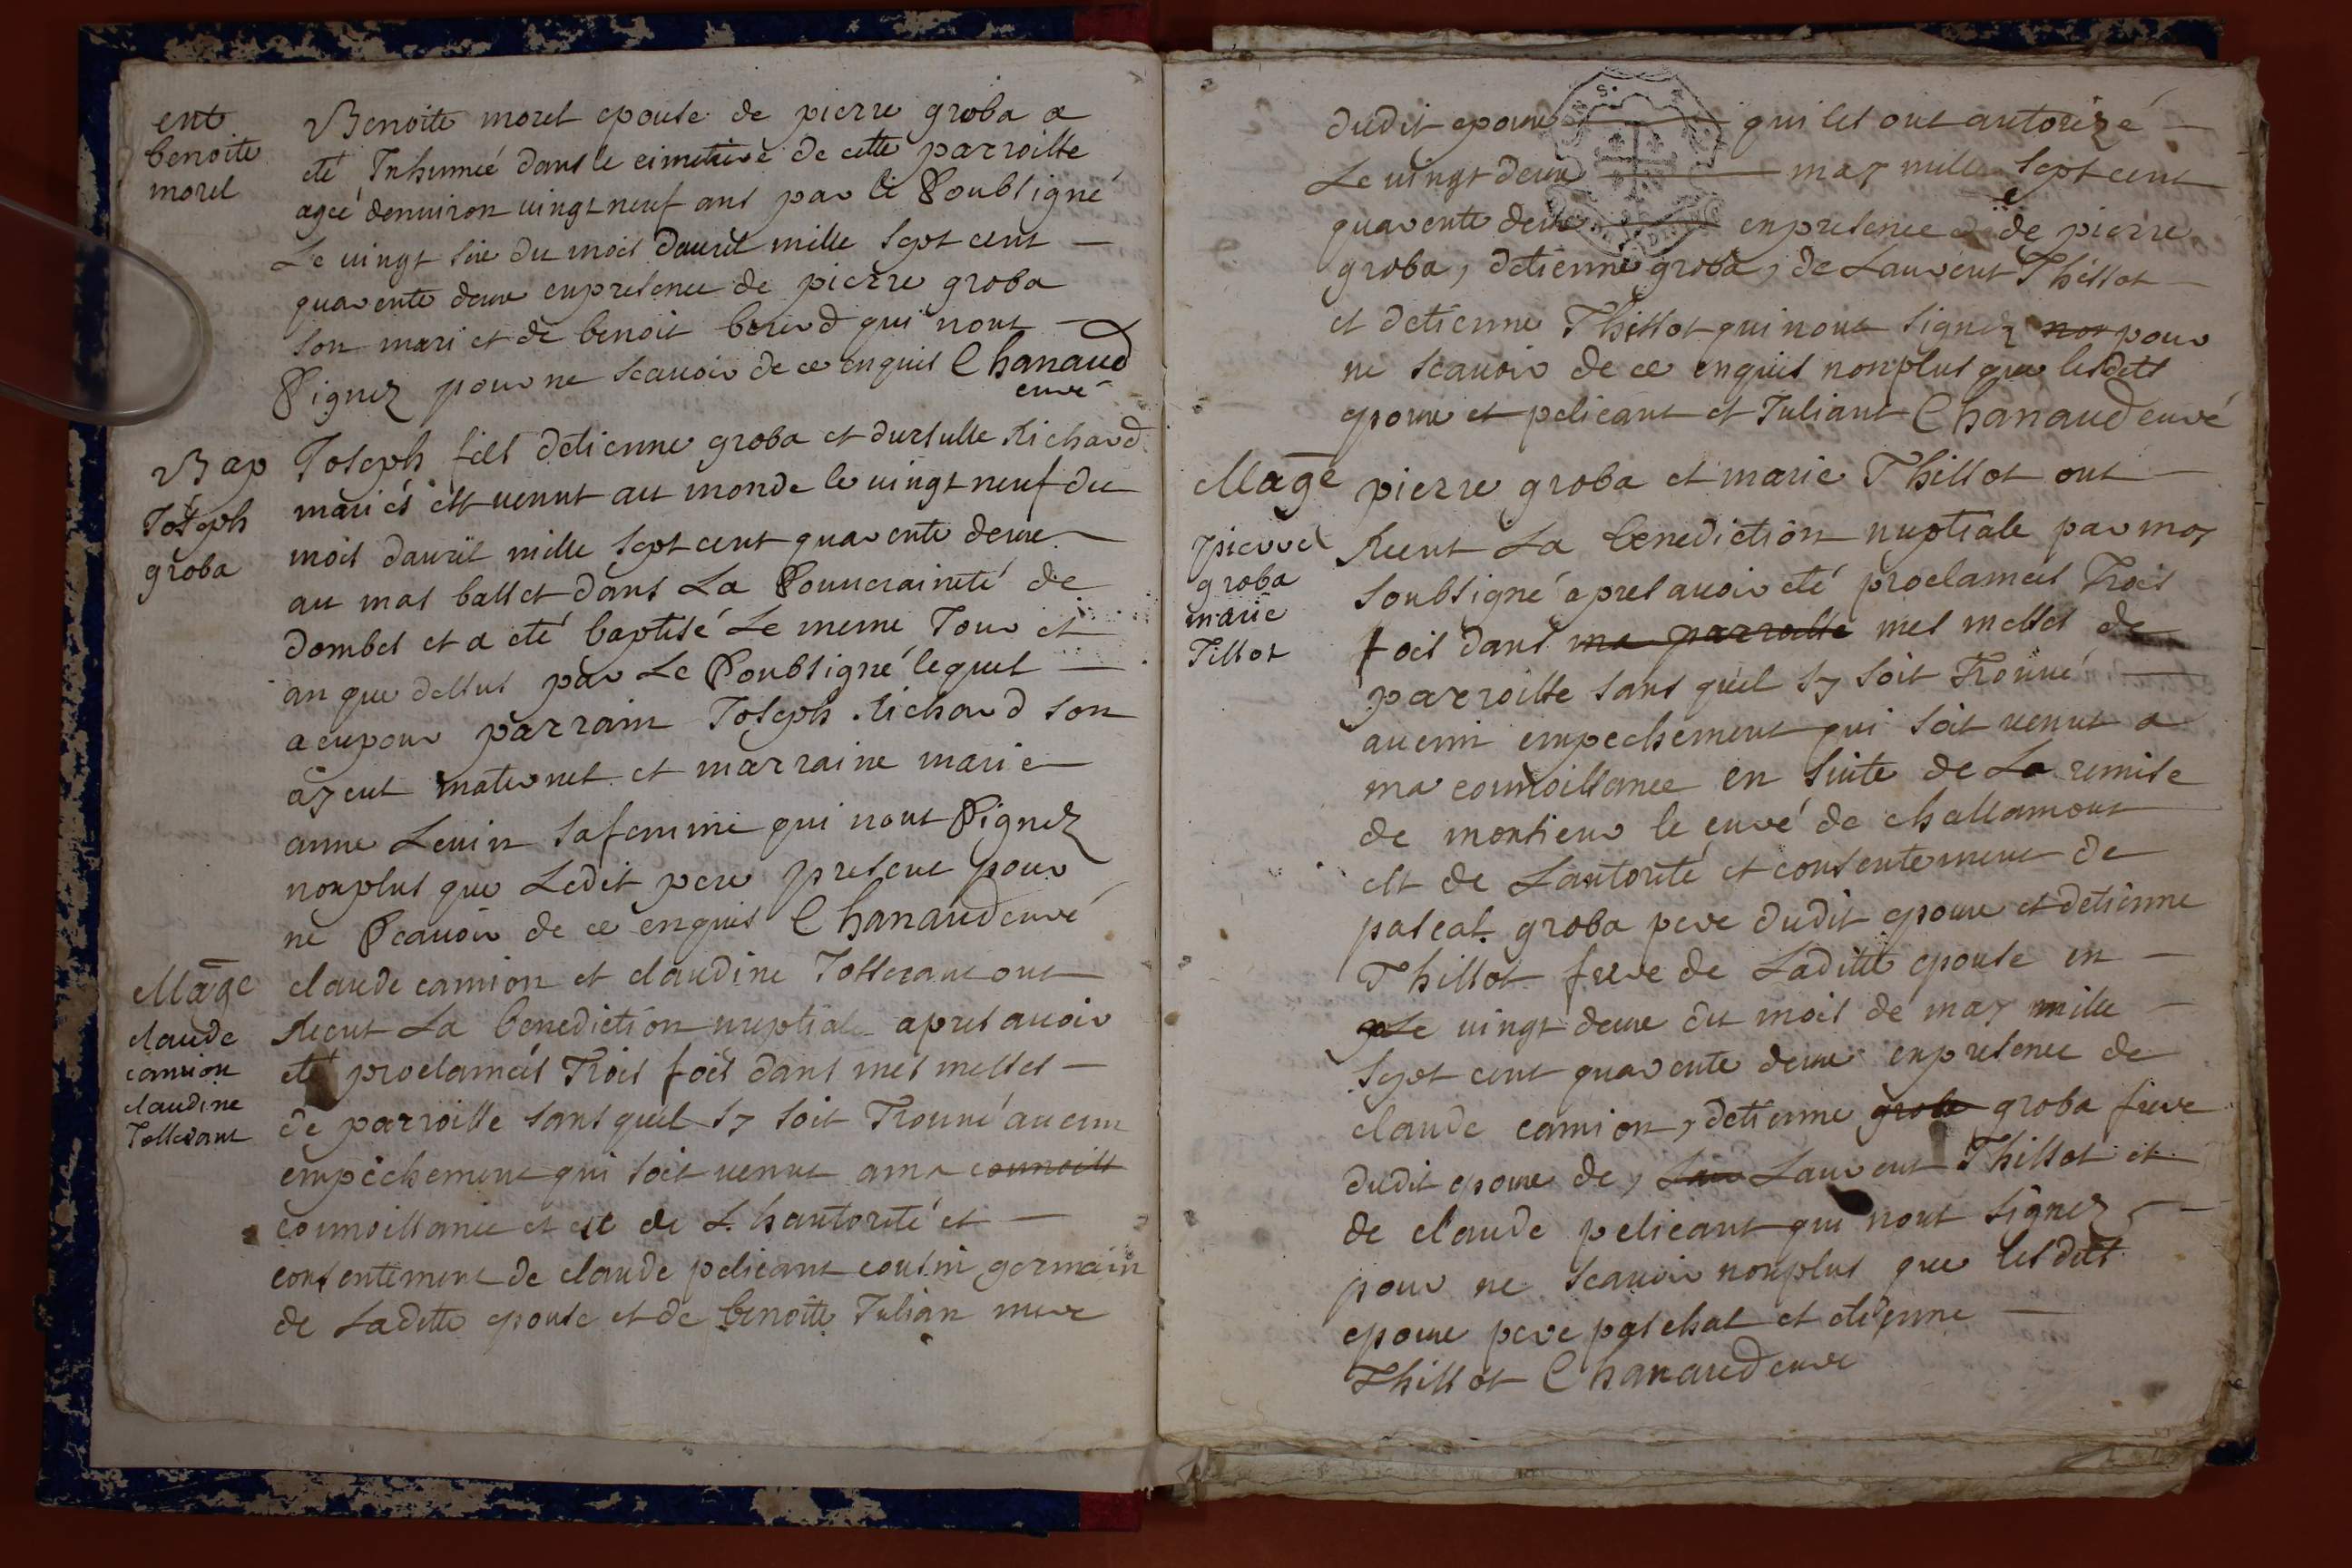 ent
benoite
morel
Benoite morel epouse de pierre groba a
eté Inhumeé dans le cimetiere de cette parroisse
ageé denuiron uingt neuf ans par le Soubsigné
Le uingt six du mois dauril mille sept cent
quarente deux enpresence de pierre groba
son mari et de benoit borwd qui nont
Signez pour ne scauoir de ce enquis Chanaud
curé
Bap
Joseph
groba
Joseph fils detienne groba et dursulle Richard
mariés est uenut au monde le uingt neuf du
mois dauril mille sept cent quarente deux
au mas basset dans La Souueraineté de
dombes et a eté baptisé Le meme Jour et
an que dessus par Le Soubsigné lequel
a eupour parrain Joseph Richard son
ayeut maternel et marraine marie
anne Leuin safemme qui nont Signez
nonplus que Ledit pere present pour
ne Scauoir de ce enquis Chanaud curé
Mage
claude
camion
claudine
Josserant
claude camion et claudine Josserant ont
Recut La benediction nuptiale apres auoir
eté proclameés Trois fois dans mes messes
de parroisse sans quil sy soit Trouué aucun
empêchement qui soit uenut a ma connoiss
connoissance et est de L'hautorité et
consentement de claude pelicant cousin germain
de Laditte epouse et de benoîte Julian mere
dudit epoux qui les ont autorizé
Le uingt deux may mille sept cent
quarente deux enpresence de pierre
groba, detienne groba, de Laurent Thillot
et detienne Thillot qui nont signez non pour
ne scauoir de ce enquis nonplus que lesdits
epoux et pelicant et Juliant Chanaud curé
Mage
pierre
groba
marie
Tillot
pierre groba et marie Thillot ont
Recut La benediction nuptiale par moy
soubsigné apres auoir eté proclameés Trois
fois dans ma parroisse mes messes de
parroisse sans quil sy soit Trouué
aucun empechement qui soit uenut a
ma connoissance en suite de La remise
de monsieur le curé de challamont
est de Lautorité et consentement de
pascal groba pere dudit epoux et detienne
Thillot frere de Laditte epouse en
Le uingt deux du mois de may mille
sept cent quarente deux enpresence de
claude camion, detienne groba groba frere
dudit epoux de, Lau Laurent Thillot et
de claude pelicant qui nont signez
pour ne scauoir nonplus que lesdits
epoux pere paschal et etienne
Thillot Chanaud curé